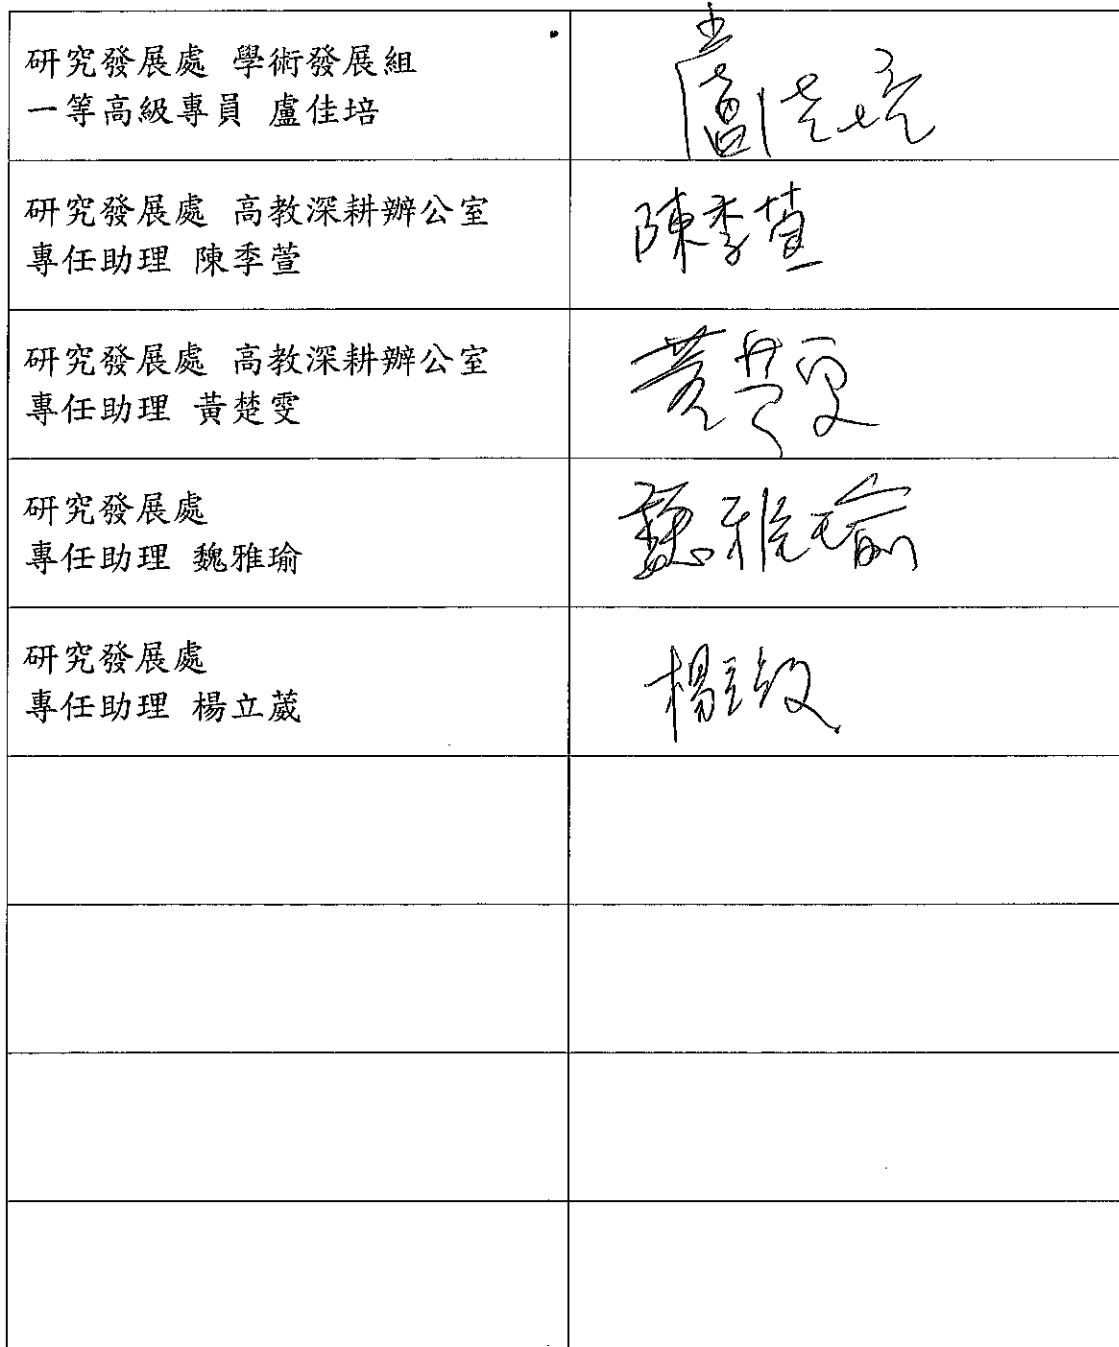 研究發展處 學術發展組
一等高級專員 盧佳培
盧佳培
研究發展處 高教深耕辦公室
專任助理 陳季萱
陳季萱
研究發展處 高教深耕辦公室
專任助理 黃楚雯
黃楚雯
研究發展處
專任助理 魏雅瑜
魏雅瑜
研究發展處
專任助理 楊立葳